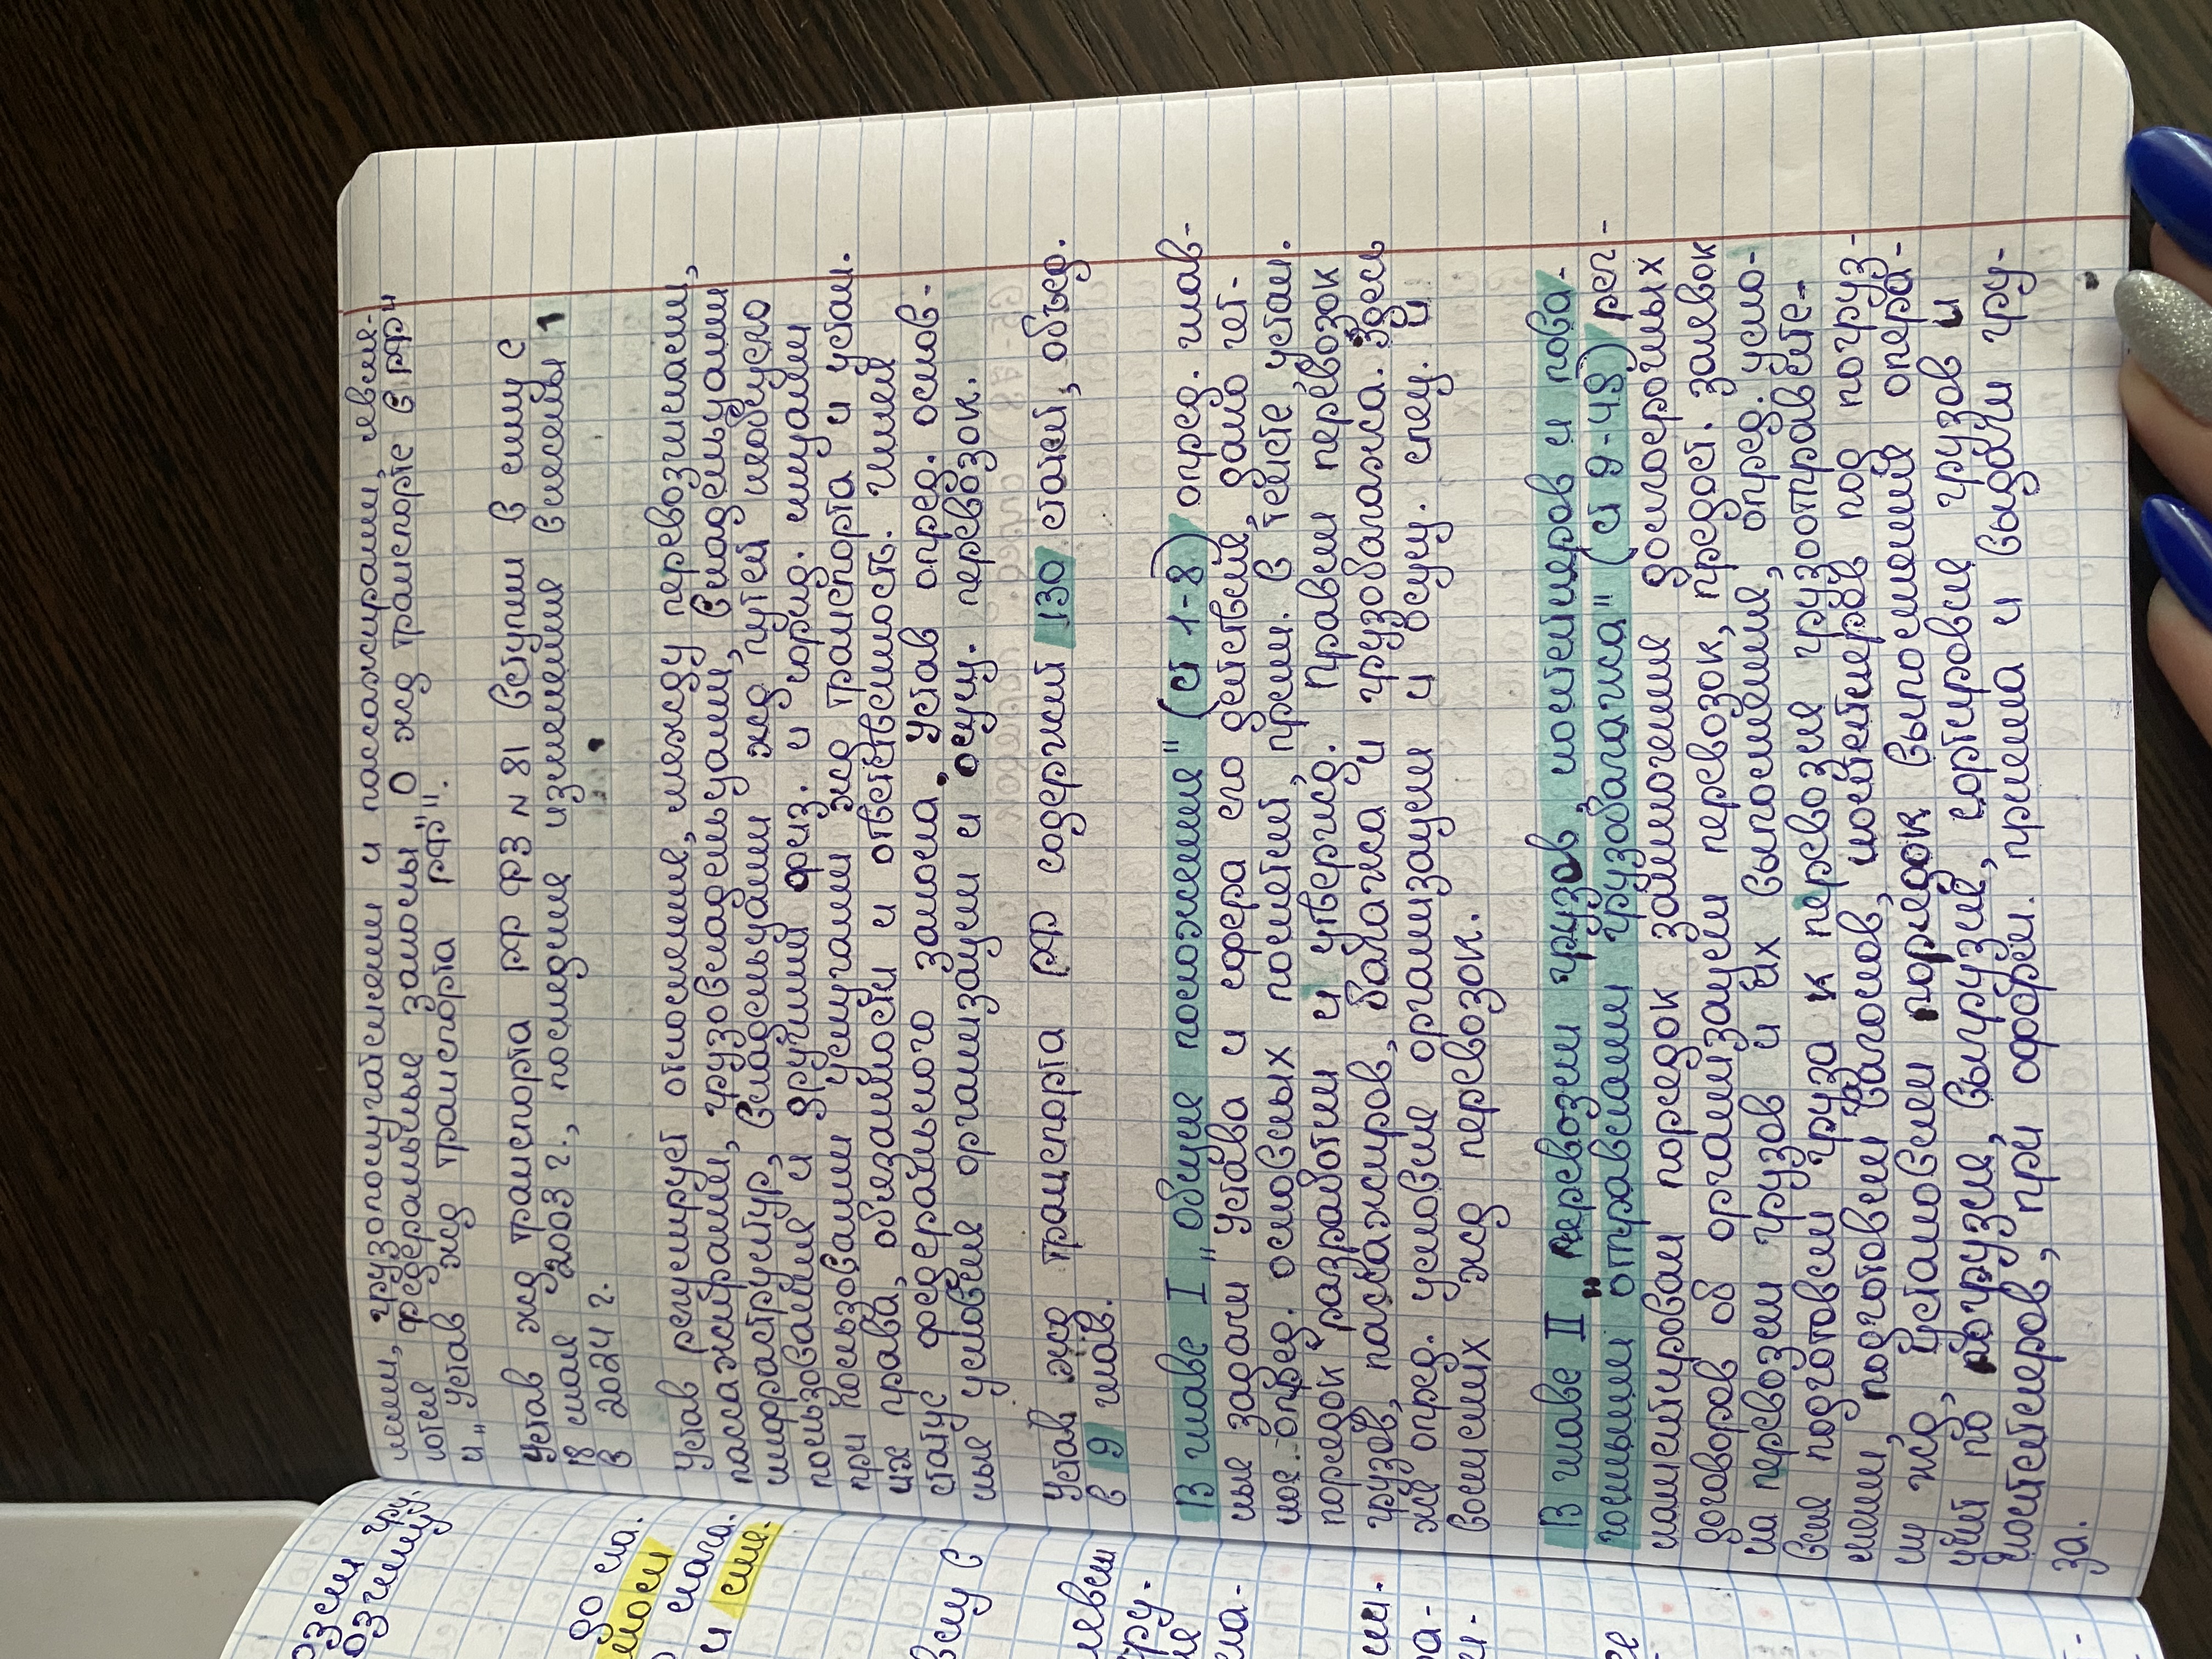 лем, грузополучателем и пассажирами, явля-
ются федеральные законы "О жд транспорте в РФ"
и "Устав жд транспорта РФ".
Устав жд транспорта РФ ФЗ N 81 вступил в силу с
18 мая 2003 г., последние изменения внесены 1
в 2024 г.
Устав регулирует отношения, между перевозчиками,
пассажирами, грузовладельцами, владельцами
инфраструктур, владельцами жд путей необщего
пользования и другими физ. и юрид. лицами
при пользовании услугами жд транспорта и устан.
их права, обязанности и ответственность. Имея
статус федерального закона, Устав опред. основ-
ные условия организации и осущ. перевозок.
Устав жд транспорта РФ содержит 130 статей, объед.
в 19 глав.
В главе I "общие положения" (ст 1-8) опред. глав-
ные задачи Устава и сфера его действия, дано чёт-
кое опред. основных понятий, прим. в тексте, устан.
порядок разработки и утвержд. правил перевозок
грузов, пассажиров, багажа и грузобагажа. Здесь
же опред. условия организации и осущ. спец. и
воинских жд перевозок.
В главе II "перевозки грузов, контейнеров и пова-
гонными отправками грузобагажа" (ст 9-48) рег-
ламентирован порядок заключения долгосрочных
договоров об организации перевозок, предост. заявок
на перевозки грузов и их выполнения, опред. усло-
вия подготовки груза к перевозке грузоотправите-
лями, подготовки вагонов, контейнеров под погруз-
ку жд, установлен порядок выполнения опера-
ций по погрузке, выгрузке, сортировке грузов и
контейнеров, при оформ. приема и выдачи гру-
за.
озки гру.
возчику
до ма.
нага.
и